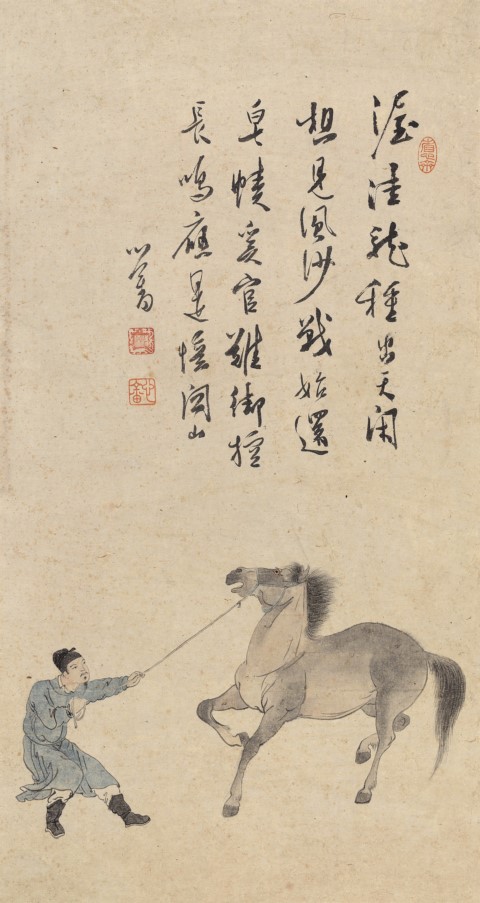 渥洼龍種出天閑
想見風沙戰始還
皁幘奚官難御控
長鳴應是憶關山
心畬
心畬